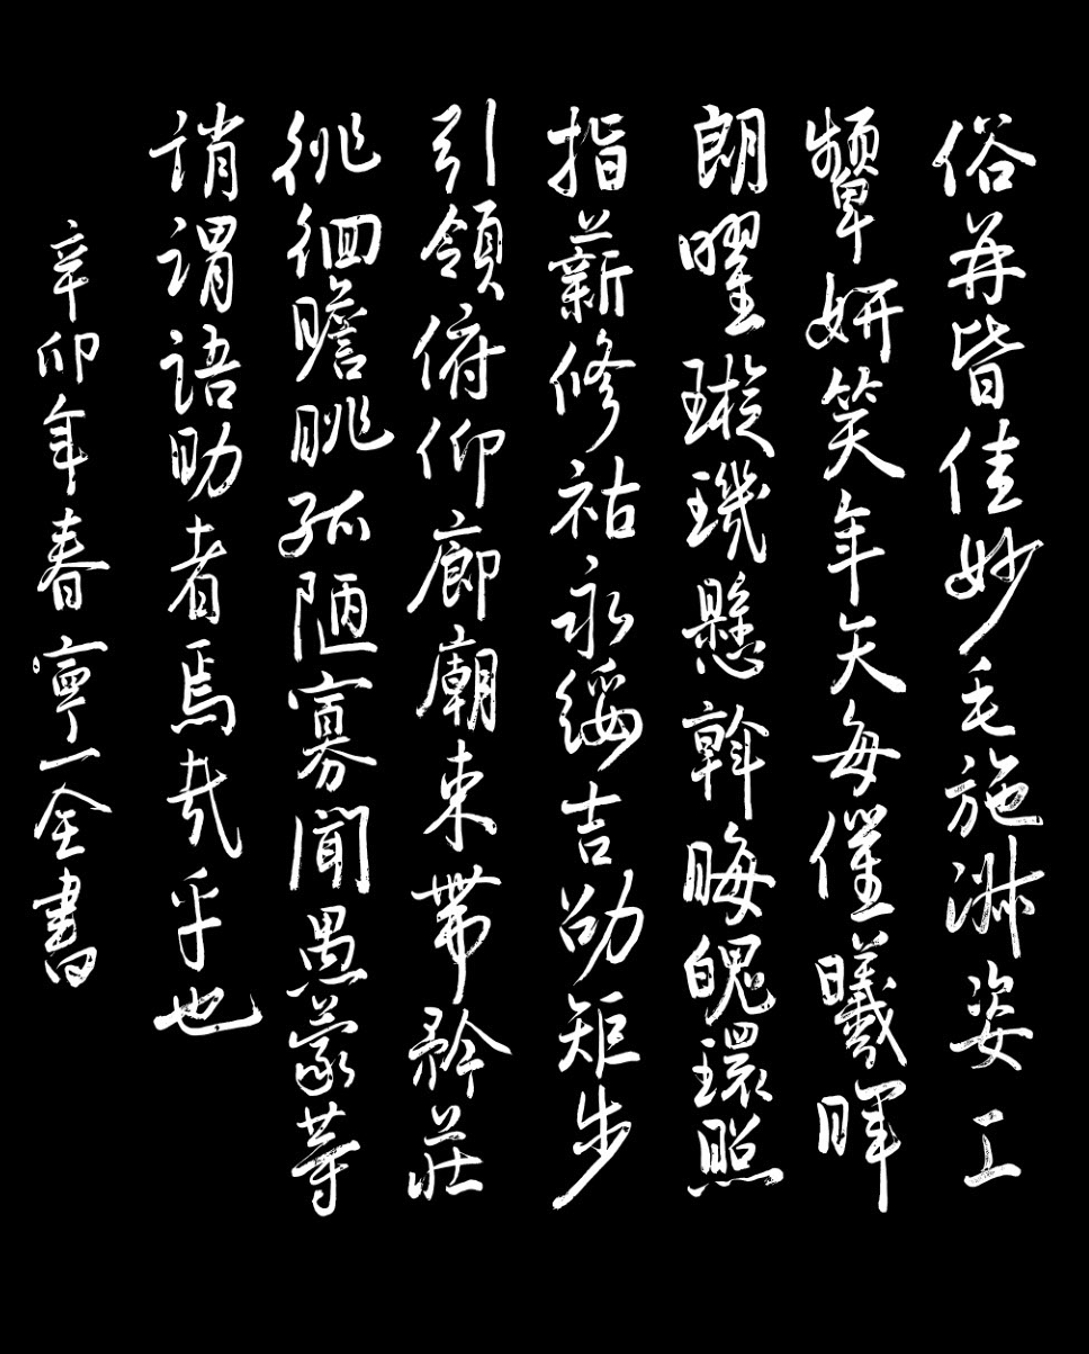 俗并皆佳妙毛施淑姿工
顰妍笑年矢每催曦暉
朗曜璇璣懸斡晦魄環照
指薪修祜永綏吉劭矩步
引領俯仰廊廟束帶矜莊
徘徊瞻眺孤陋寡聞愚蒙等
誚謂語助者焉哉乎也
辛卯年春寧一全書